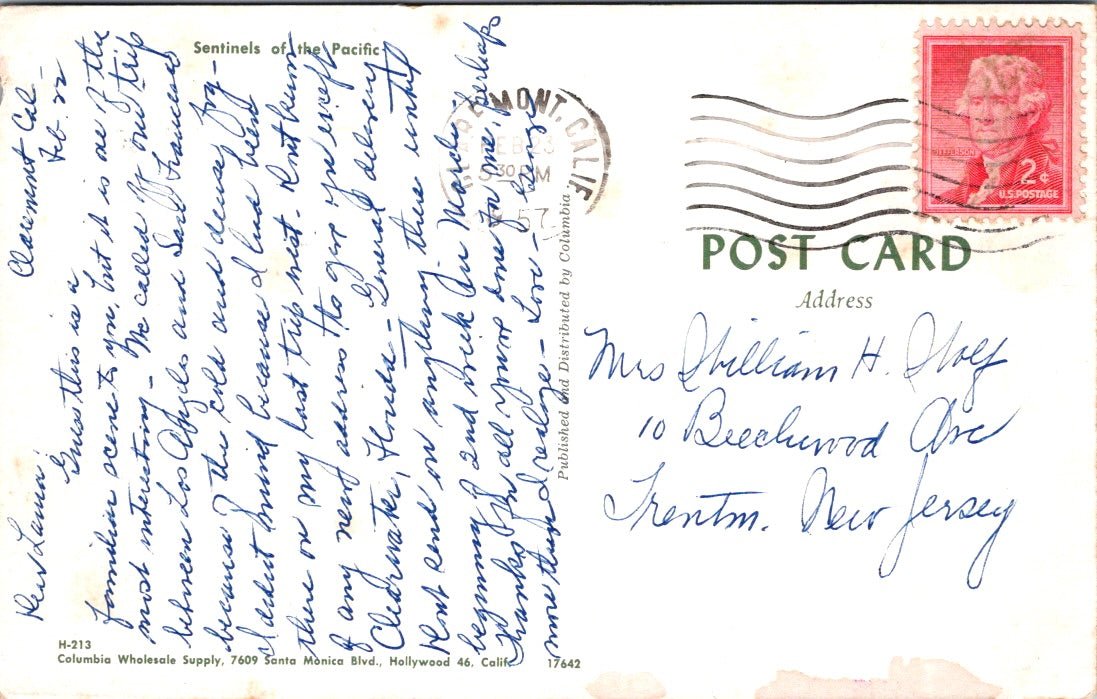 Sentinels of the Pacific
Claremont Cal –
Feb. 22
Dear Laura:
Guess this is a
familiar scene to you, but it is one of the
most interesting – We called by our trip
between Los Angeles and San Francisco
because of the cold and dense fog –
I didn't mind because I had been
there on my last trip west. Don't know
if any new address to give you except
Clearwater, Florida – General delivery
Don't send on anything there until
beginning of 2nd week in March.
Thanks for all you've done for me, perhaps
more than I realize – Love – Lange
CLAREMONT, CALIF
FEB 23
5 30 PM
57
JEFFERSON
2¢
U.S. POSTAGE
POST CARD
Address
Mrs William H. Wolf
10 Beechwood Ave
Trenton. New Jersey
Published and Distributed by Columbia
H-213
Columbia Wholesale Supply, 7609 Santa Monica Blvd., Hollywood 46, Calif.
17642